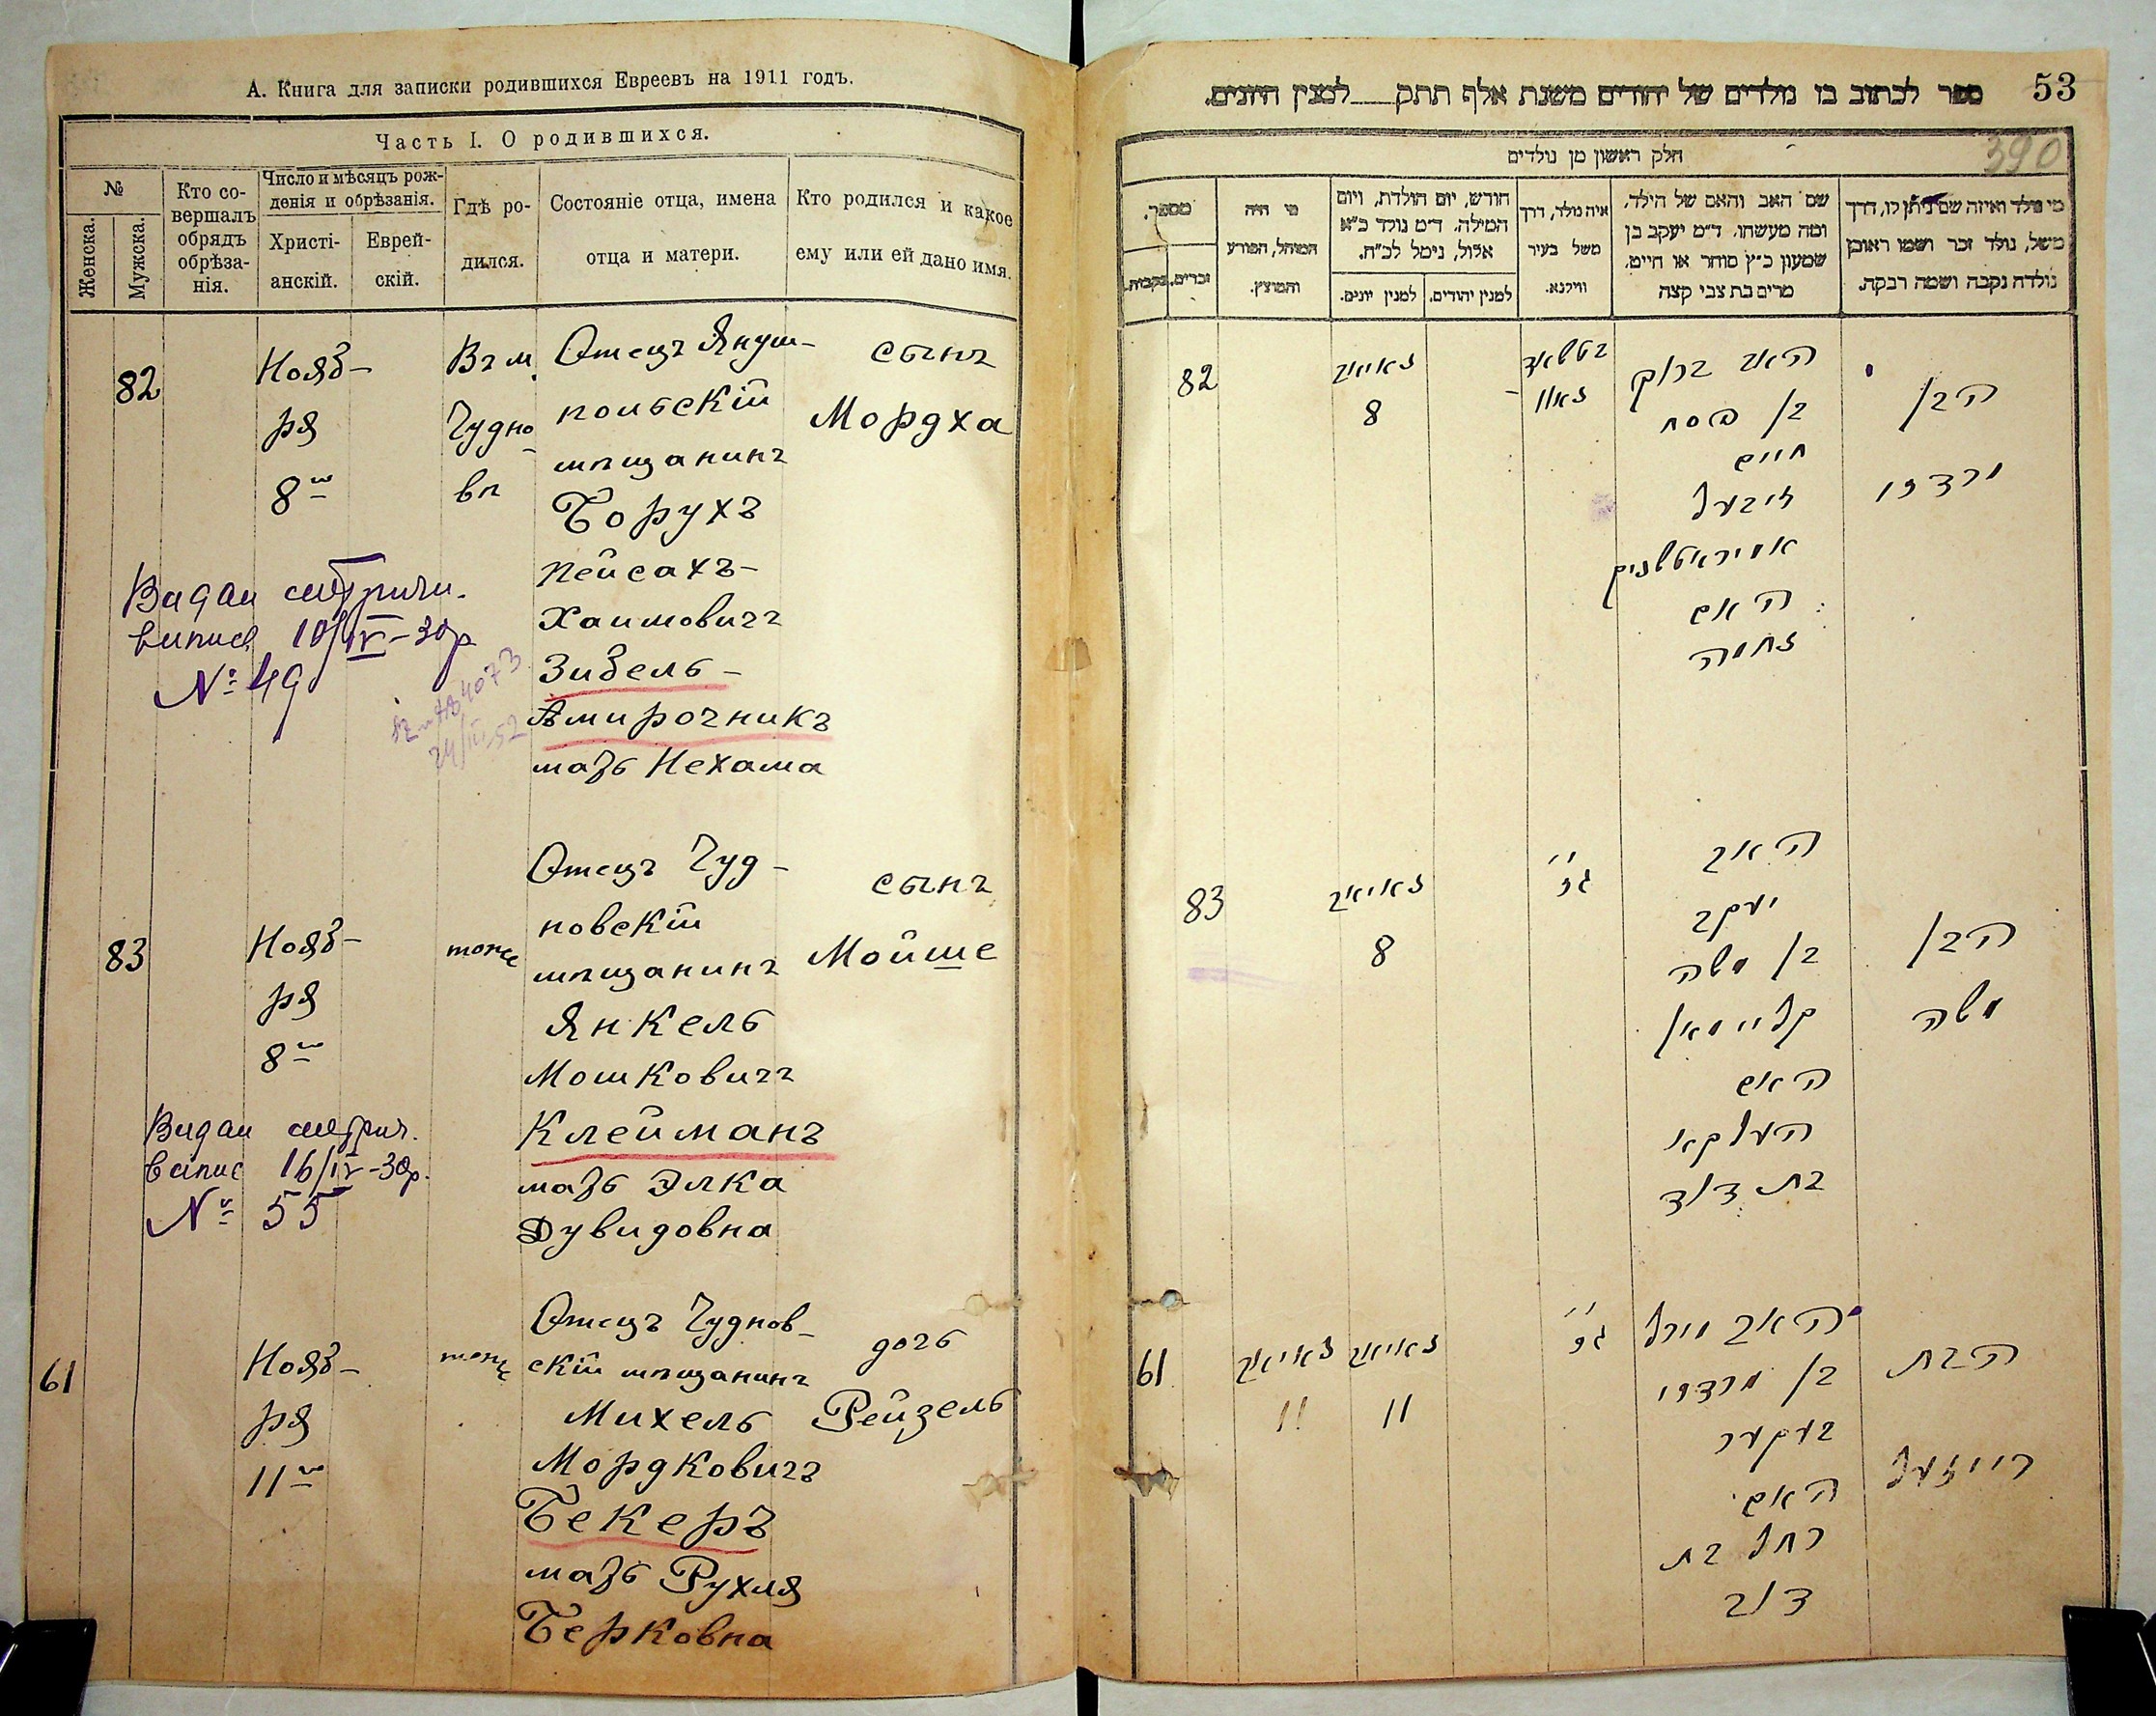 А. Книга для записки родившихся Евреевъ на 1911 годъ.
Часть I. О родившихся.
№
Женска.
Мужска.
Кто со-
вершалъ
обрядъ
обрѣза-
нія.
Число и мѣсяцъ рож-
денія и обрѣзанія.
Христі-
анскій.
Еврей-
скій.
Гдѣ ро-
дился.
Состояніе отца, имена
отца и матери.
Кто родился и какое
ему или ей дано имя.
82
Нояб-
ря
8
Въ м.
Чудно
вѣ
Отецъ Януш-
польскій
мѣщанинъ
Борухъ
Пейсахъ-
Хаимовичъ
Зибель-
Амирочникъ
мать Нехама
сынъ
Мордха
10/IV-30р
№ 49
83
Нояб-
ря
8
тоже
Отецъ Чуд-
новскій
мѣщанинъ
Янкель
Мошковичъ
Клейманъ
мать Элка
Дувидовна
сынъ
Мойше
16/IV-30р.
№ 55
61
Нояб-
ря
11
тоже
Отецъ Чуднов-
скій мѣщанинъ
Михель
Мордковичъ
Бекеръ
мать Рухля
Берковна
дочь
Рейзель
53
ספר לכתוב בו נולדים של יהודים משנת אלף תתק למנין היונים.
390
חלק ראשון מן נולדים
מספר.
זכרים.
נקבות.
מי היה
המוהל, הפורע
והמוצץ.
חודש, יום הולדת, ויום
המילה. ד״מ נולד כ״א
אלול, נימל לכ״ח.
למנין יונים.
למנין יהודים.
איה נולד, דרך
משל בעיר
ווילנא.
שם האב והאם של הילד,
ומה מעשהו. ד״מ יעקב בן
שמעון כ״ץ סוחר או חייט.
מרים בת צבי קצה
מי נולד ואיזה שם ניתן לו, דרך
משל, נולד זכר ושמו ראובן
נולדה נקבה ושמה רבקה.
82
נאיאב
8
האב ברוך
בן פסח
חיים
זיבעל
האם
נחמה
הבן
מרדכי
83
נאיאב
8
האב
יעקב
בן משה
קליימאן
האם
העלקא
בת דוד
הבן
משה
61
נאיאב
נאיאב
11
11
האב מיכל
בן מרדכי
בעקער
האם
רחל בת
דוב
הבת
רייזעל